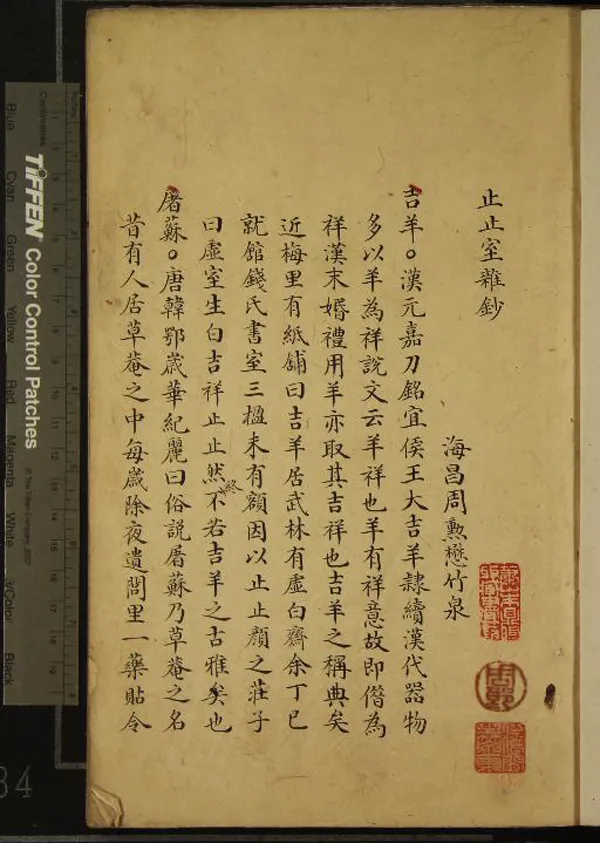 止止室雜鈔
海昌周勳懋竹泉
吉羊。漢元嘉刀銘宜侯王大吉羊隸續漢代器物
多以羊為祥說文云羊祥也羊有祥意故即僭為
祥漢末婚禮用羊亦取其吉祥也吉羊之稱典矣
近梅里有紙舖曰吉羊居武林有虛白齋余丁巳
就館錢氏書室三楹未有額因以止止顏之莊子
曰虛室生白吉祥止止然不若吉羊之古雅矣也
屠蘇。唐韓鄂歲華紀麗曰俗說屠蘇乃草菴之名
昔有人居草菴之中每歲除夜遺閭里一藥貼令
TIFFEN Color Control Patches
© The Tiffen Company, 2007
Centimetres
Inches
Blue
Cyan
Green
Yellow
Red
Magenta
White
3/Color
Black
34